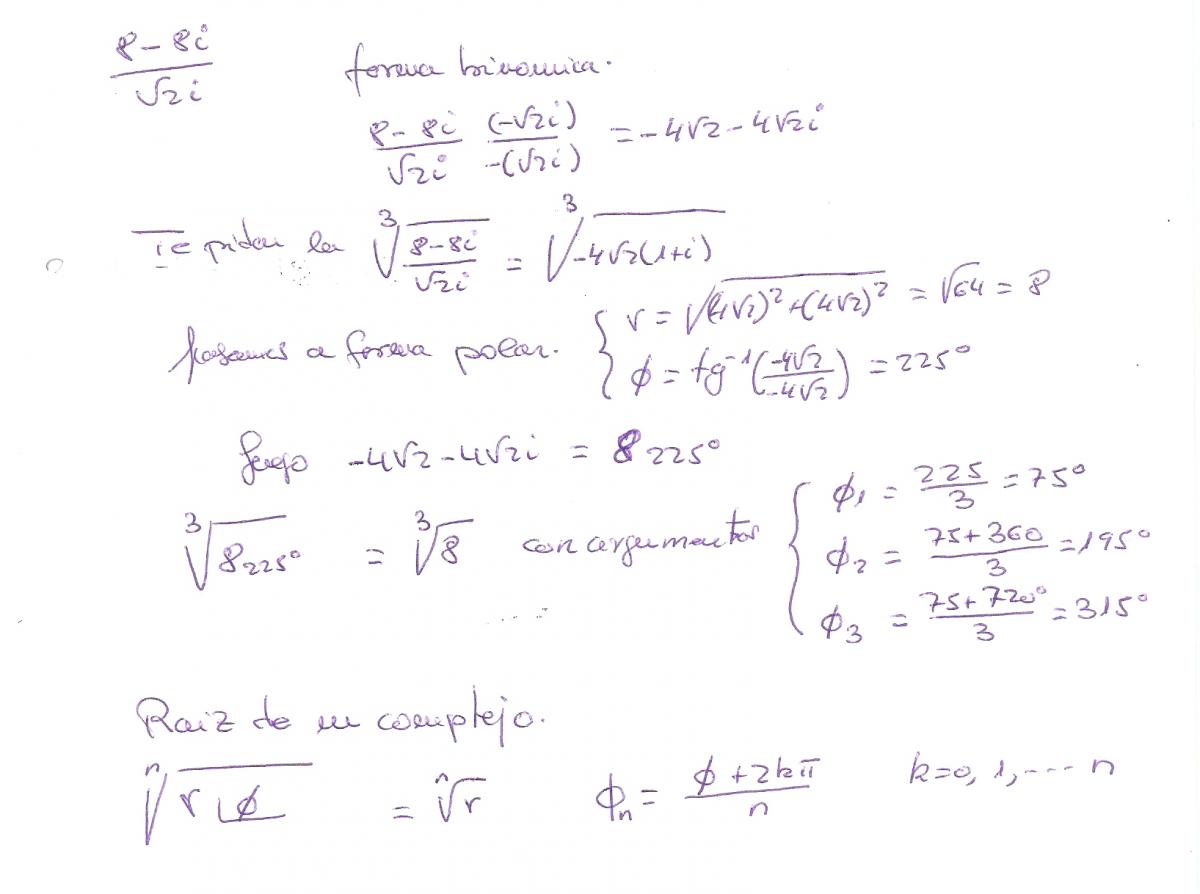 8-8i / √2i forma binomica.
8-8i / √2i (-√2i) / -(√2i) = -4√2 - 4√2i
Te piden la ³√(8-8i / √2i) = ³√(-4√2(1+i))
pasamos a forma polar. { r = √((4√2)² + (4√2)²) = √64 = 8
ϕ = tg⁻¹(-4√2 / -4√2) = 225°
luego -4√2 - 4√2i = 8 225°
³√(8 225°) = ³√8 con argumentos { ϕ1 = 225 / 3 = 75°
ϕ2 = 75+360 / 3 = 195°
ϕ3 = 75+720° / 3 = 315°
Raiz de un complejo.
ⁿ√(r ∠ϕ) = ⁿ√r ϕn = ϕ+2kπ / n k=0, 1, ---- n